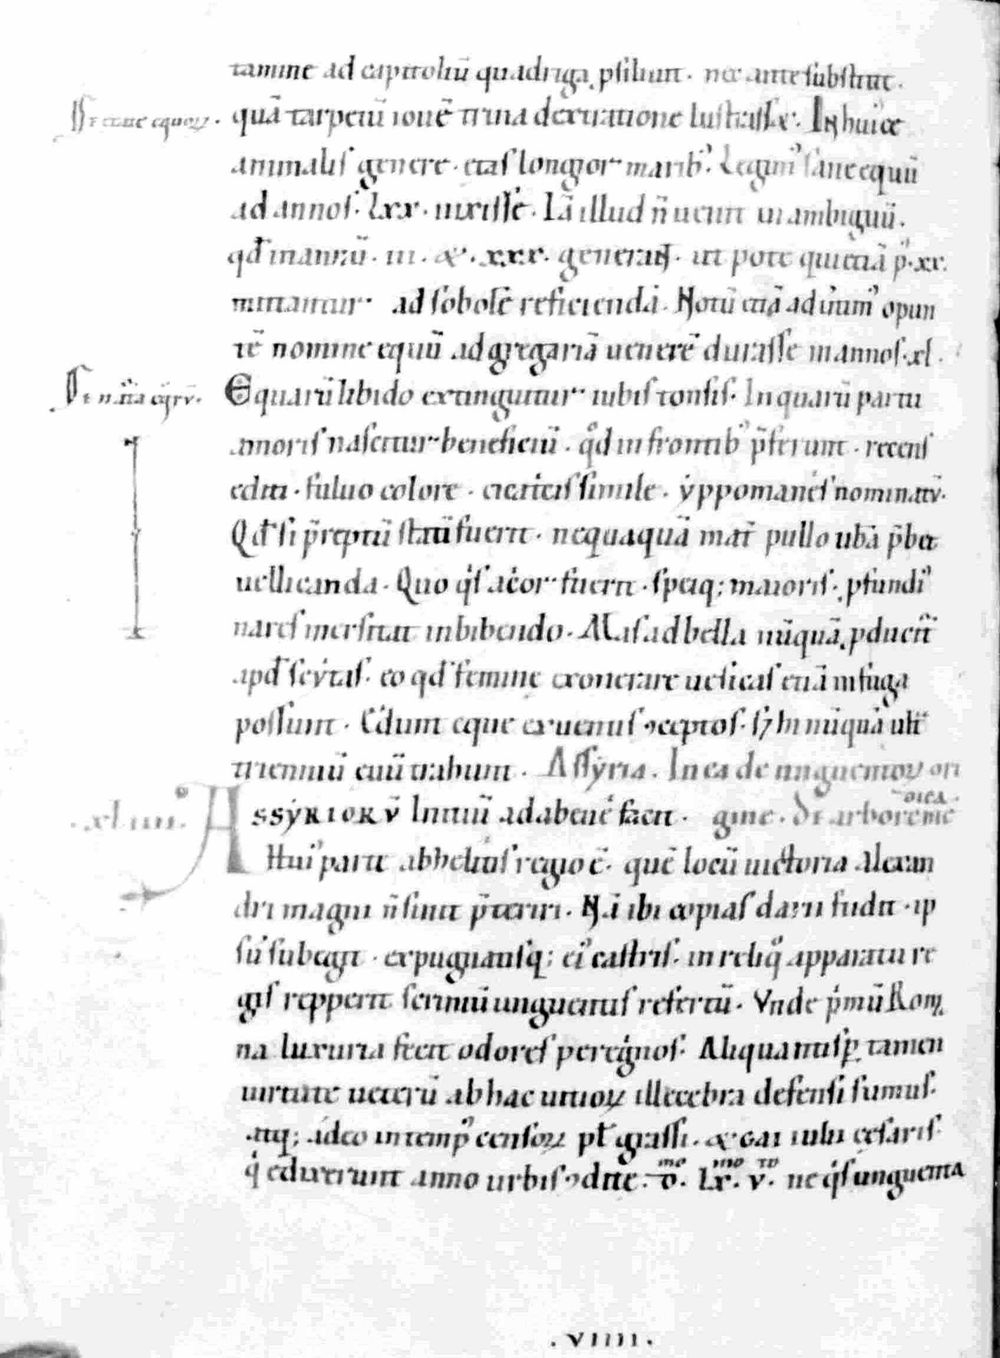 tamine ad capitoliū quadriga ꝓsiliunt · nec ante substitit ·
De etate equoꝝ ·
quā tarpeiū iouē trina dextratione lustrasset · In huiꝰce
animalis genere · etas longior marib⁹ · Legim⁹ sane equū
ad annos · lxx · uixisse · Iā illud n̄ uenit in ambiguū ·
qđ in annū · iii · & · xxx · generaNt · ut pote qui etiā p⁹ · xx ·
mittantur ad sobolē reficiendā · Notū etiā ad unum⁹ opun
tē nomine equū ad gregariā uenerē durasse in annos · xl ·
De natīa eqrū ·
Equarū libido extinguitur iubis tonsis · In quarū partu
amoris nascitur beneficiū · qđ in frontib⁹ p̄ferunt · recens
editi · fuluo colore · caricis simile · yppomanes nominatū ·
Qđ si p̄reptū statī fuerit · nequaquā mat̄ pullo ubā p̄bet
uellicanda · Quo q̇s ac̄or fuerit · speiq; maioris · ꝓfundi⁹
nares mersitat in bibendo · Mas ad bella nūquā ꝓducit̄
apđ scytas · eo qđ femine exonerare uesicas etiā in fuga
possunt · Edunt eque ex uentis ꝯceptos · s; hi nūquā ult̄
trienniū euū trahunt · Assyria · In ea de unguentoꝝ ori
· xl iiii ·
ASSYRIORV̄ Initiū adabenē facit · gine · De arbore me
dica ·
Hui⁹ parti abhelitis regio ē · quē locū uictoria Alexan
dri magni n̄ sinit p̄teriri · Nā ibi copias darii fudit · ip
sū subegit · expugnatisq; ei⁹ castris · in reliqͦ apparatu re
gis repperit scriniū unguentis refertū · Vnde p̄mū Rom
na luxuria fecit odores peregr̄nos · Aliquantisꝑ tamen
uirtute ueterū ab hac uitioꝝ illecebra defensi sumus ·
Atq; adeo in temp⁹ censoꝝ pł grassi · & gai iulii cesaris
q̇ edixerunt anno urbis ꝯdite · D̄ · Lx̄ · v · ne q̇s unguenta
· VIIII ·